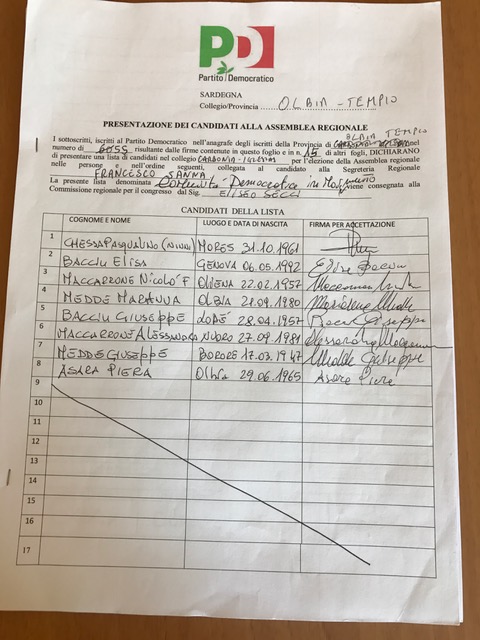 PD
Partito Democratico
SARDEGNA
Collegio/Provincia OLBIA - TEMPIO
PRESENTAZIONE DEI CANDIDATI ALLA ASSEMBLEA REGIONALE
OLBIA TEMPIO
I sottoscritti, iscritti al Partito Democratico nell'anagrafe degli iscritti della Provincia di nel
numero di risultante dalle firme contenute in questo foglio e in n. 15 di altri fogli, DICHIARANO
di presentare una lista di candidati nel collegio CARBONIA-IGLESIAS per l'elezione della Assemblea regionale
nelle persone e nell'ordine seguenti, collegata al candidato alla Segreteria Regionale
FRANCESCO SANNA
La presente lista denominata Comunità Democratica in Movimento viene consegnata alla
Commissione regionale per il congresso dal Sig. ELISEO SECCI
CANDIDATI DELLA LISTA
COGNOME E NOME LUOGO E DATA DI NASCITA FIRMA PER ACCETTAZIONE
1 CHESSA PASQUALINO (NINNI) MORES 31.10.1961
2 BACCIU ELISA GENOVA 06.05.1992 Elisa Bacciu
3 MACCARRONE NICOLÓ F OLIENA 22.02.1957
4 MEDDE MARIANNA OLBIA 21.09.1980 Marianna Medde
5 BACCIU GIUSEPPE LODÉ 28.04.1957 Bacciu Giuseppe
6 MACCARRONE ALESSANDRA NUORO 27.09.1981 Alessandra Maccarrone
7 MEDDE GIUSEPPE BORORE 17.03.1947 Medde Giuseppe
8 ASARA PIERA OLBIA 29.06.1965 Asara Piera
9
10
11
12
13
14
15
16
17